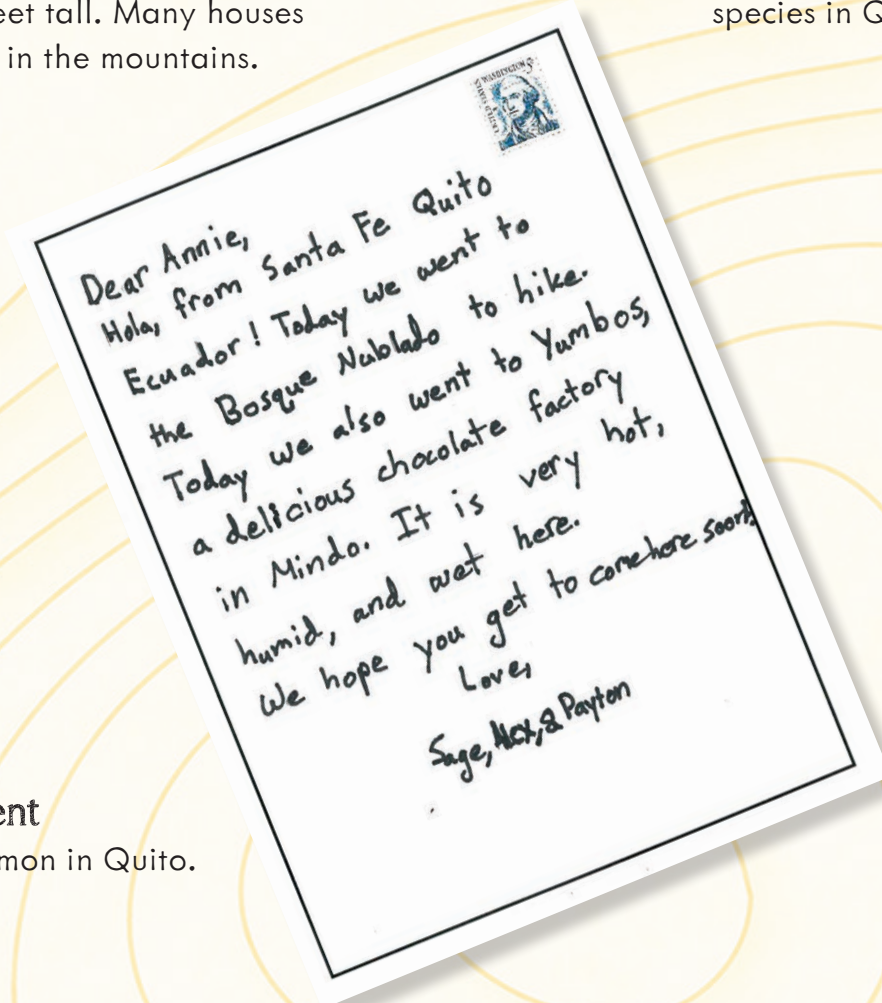 eet tall. Many houses
in the mountains.
species in Q
WASHINGTON 5¢
UNITED STATES
Dear Annie,
Hola, from Santa Fe Quito
Ecuador! Today we went to
the Bosque Nublado to hike.
Today we also went to Yumbos,
a delicious chocolate factory
in Mindo. It is very hot,
humid, and wet here.
We hope you get to come here soon!
Love,
Sage, Alex, & Payton
ent
mon in Quito.